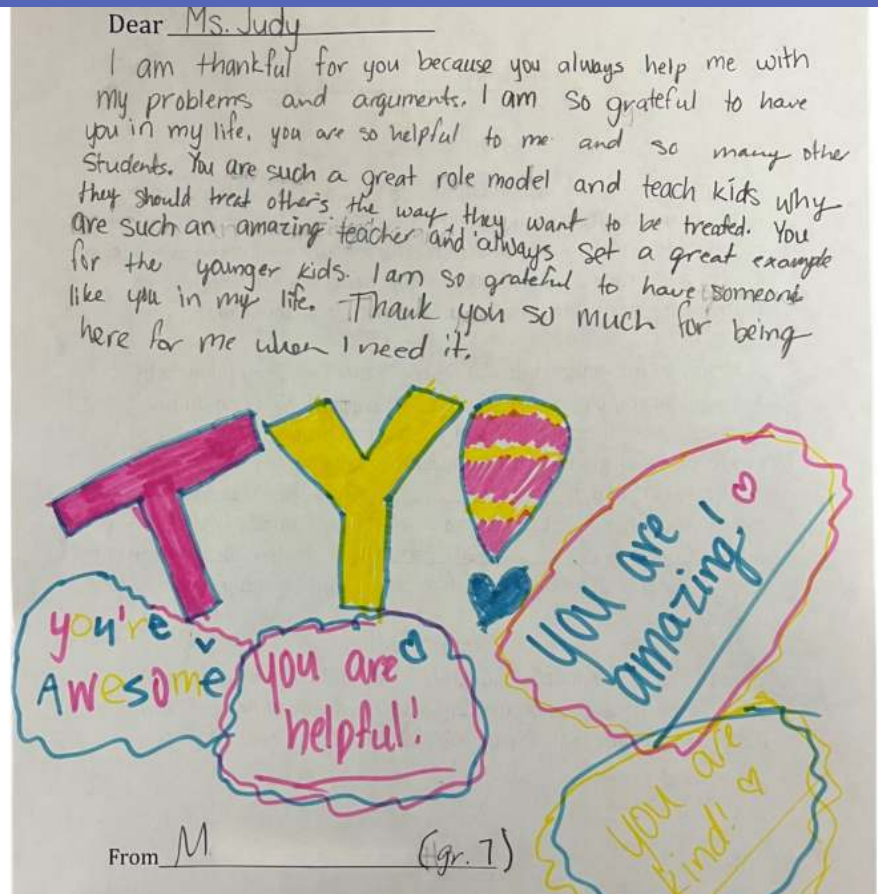 Dear Ms. Judy
I am thankful for you because you always help me with
my problems and arguments. I am so grateful to have
you in my life. you are so helpful to me and so many other
Students. You are such a great role model and teach kids why
they should treat other's the way they want to be treated. You
are such an amazing teacher and always set a great example
for the younger kids. I am so grateful to have someone
like you in my life. Thank you so much for being
here for me when I need it.
TY!
you're
AWesome
you are
helpful!
you are
amazing!
you are
kind!
From M (gr. 7)